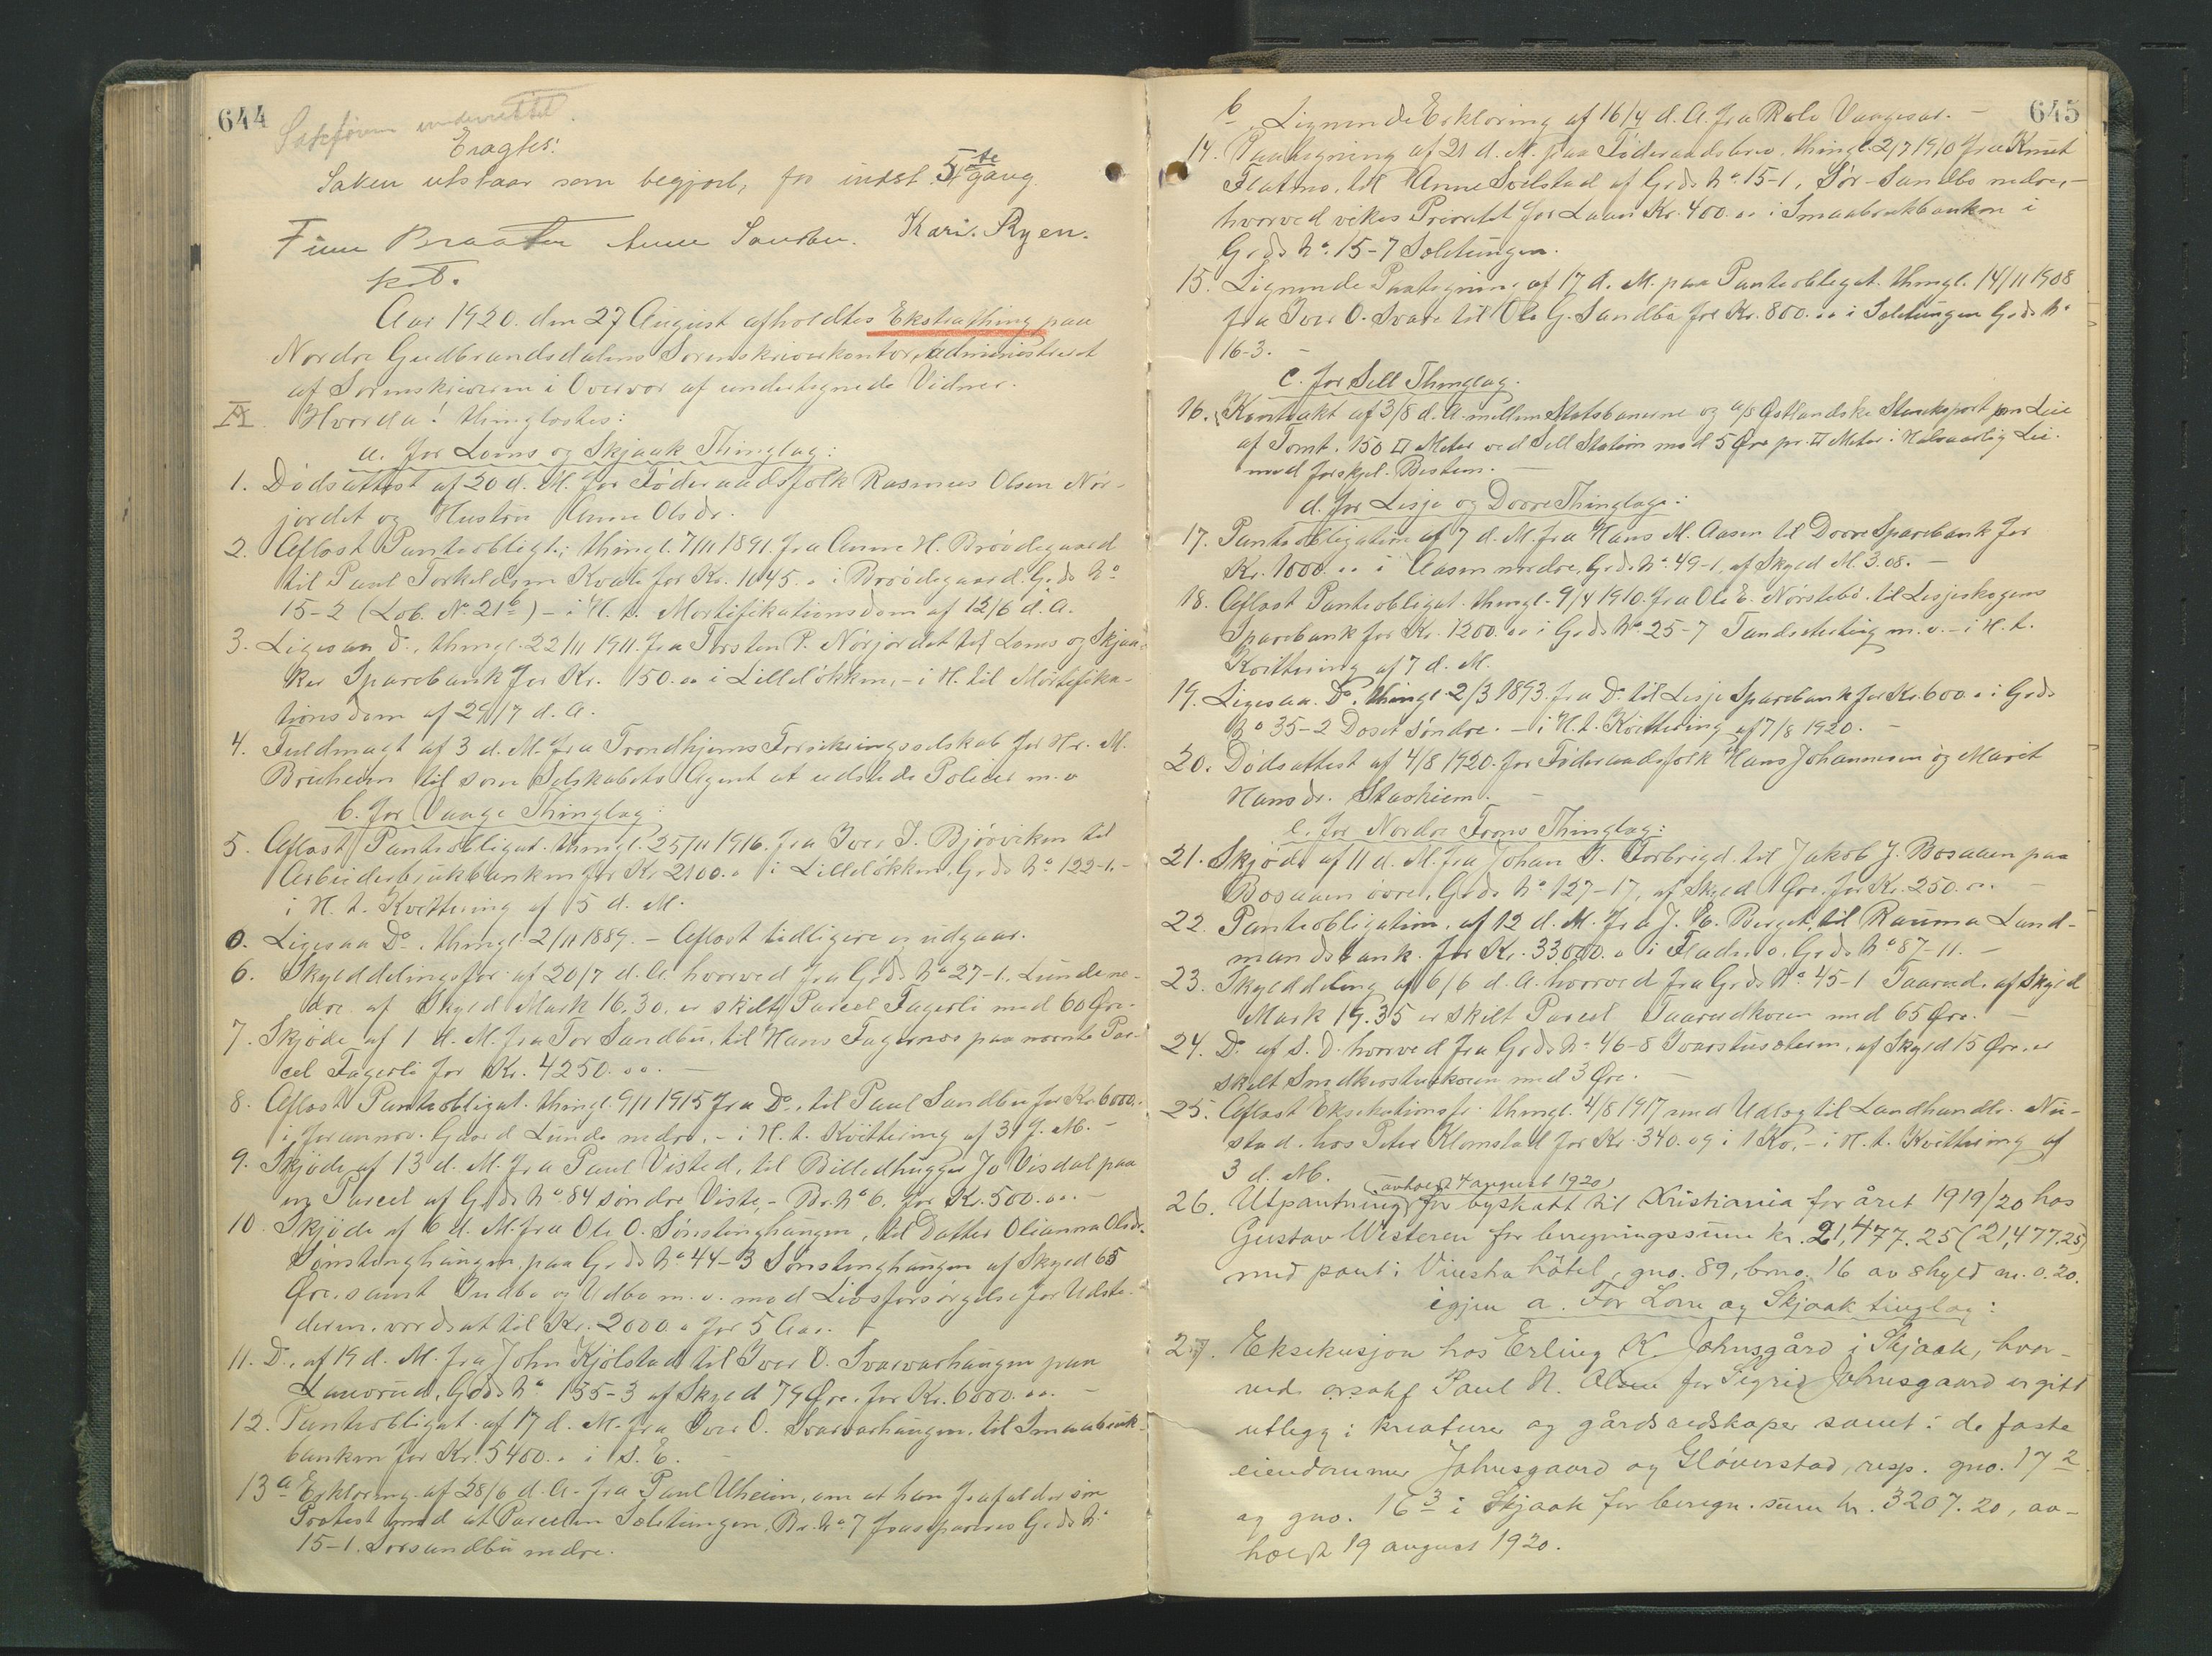 644
Sakføren underrettet.
Eragtes:
Saken utstaar som begjært, for indst. 5te gang
Finn Braaten Anne Sandbu. Kari Ryen.
k.t.
Aar 1920 den 27 August afholdtes Ekstrathing paa
Nordre Gudbrandsdalens Sorenskriverkontor, administreret
af Sorenskriveren i Overvær af undertegnede Vidner.
Hvorda! thinglæstes:
a. for Loms og Skjaak Thinglag:
1. Dødsattest af 20 d. M. for Føderaadsfolk Rasmus Olsen Nør-
jordet og Hustru Anne Olsdr.
2. Aflæst Panteobligt., thingl. 7/11 1891. fra Anne H. Brøødegaard
til Paul Torkeldsen Kvale for Kr. 1045.00 i Brøødegaard G. ds No
15-2 (Lob. No 21b) - i H. t. Mortifikationsdom af 12/6 d. A.
3. Ligesaa Do., thingl. 22/11 1911. fra Torsten P. Nørjordet til Loms og Skjaa-
ker Sparebank for Kr. 150.00 i Lilleløkken, - i H. til Mortifika-
tionsdom af 29/7 d. A.
4. Fuldmagt af 3 d. M. fra Trondhjems Forsikringsselskab for Hr. M.
Bruheim til som Selskabets Agent at udstede Policer m. v
b. for Vaage Thinglag
5. Aflæst Panteobligat. thingl. 25/11 1916. fra Iver I. Bjørviken til
Arbeiderbrukbanken for Kr 2100.00 i Lilleløkken, G. ds No 122-1. -
i H. t. Kvittering af 5 d. M.
0. Ligesaa Do., thingl. 2/11 1889. - Aflæst tidligere og udgaar.
6. Skylddelingsfor. af 20/7 d. A. hvorved fra G. ds No 27-1. Lunde ne-
dre af Skyld Mark 16.30. er skilt Parcel Fagerli med 60 Øre.
7. Skjøde af 1 d. M. fra Tor Sandbu, til Hans Fagernæs paa nævnte Par-
cel Fagerli for Kr. 4250.00. -
8. Aflæst Panteobligat. thingl. 9/1 1915 fra Do., til Paul Sandbu for Kr. 6000.
i forannæv. Gaard Lunde nedre, - i H. t. Kvittering af 31 f. M. -
9. Skjøde af 13 d. M. fra Paul Visted, til Billedhugger Jo Visdal paa
en Parcel af G. ds No 84 søndre Viste, - Br. No 6. for Kr. 500.00. -
10. Skjøde af 6 d. M. fra Ole O. Sønstinghaugen, til Datter Olianna Olsdr.
Sønstinghaugen, paa G. ds No 44-3 Sønstinghaugen af Skyld 65
Øre, samt Indbo og Udbo m. v. mod Livsforsørgelse for Udste-
deren, værdsat til Kr. 2000.00 for 5 Aar. -
11. Do., af 19 d. M. fra John Kjølstad til Iver O. Svarvarhaugen paa
G. ds No 155-3 af Skyld 79 Øre, for Kr. 6000.00. -
12. Panteobligat. af 17 d. M. fra Iver O. Svarvarhaugen, til Smaabruk-
banken for Kr. 5400.00 i S. E. -
13a Erklæring af 28/6 d. A. fra Paul Uheim, om at han frafalder sin
Protest mod at Parcellen Soletungen, Br. No 7 fraseparerers G. ds No
15-1. Sørsandbu nedre.
645
b. Lignende Erklæring af 16/4 d. A. fra Vaagesar. -
14. Paategning af 21 d. M. paa Føderaadsbrev, thingl. 2/7 1910 fra Knut
Flatmo, til Anne Solstad af G. ds No 15-1, Sør-Sandbo nedre, -
hvorved vikes Prioritet for Laan Kr. 400.00 i Smaabrukbanken i
G. ds No 15-7 Soletungen.
15. Lignende Paategning af 17 d. M. paa Panteobligat. thingl. 14/11 1908
fra Iver O. Svare til Ole G. Sandbu for Kr. 800.00 i Soletungen G. ds No
16-3. -
c. for Sell Thinglag.
16. Kontrakt af 3/8 d. A. mellem Statsbanerne og a/s Østlandske Steneksport om Leie
af Tomt, 150 □ Meter ved Sell Station mod 5 Øre pr. □ Meter i Halvaarlig Leie.
med forskjel. Bestem. -
d. for Lesje og Dovre Thinglage:
17. Panteobligation af 7 d. M. fra Hans M. Aasen til Dovre Sparebank for
Kr. 1000.00 i Aasen nordre, G. ds No 49-1, af Skyld M. 3.08. -
18. Aflæst Panteobligat. thingl. 9/4 1910. fra Ole E. Nørstebø. til Lesjeskogens
Sparebank for Kr. 1200.00 i G. ds No 25-7 Tandsæterteig m. v. - i H. t.
Kvittering af 7 d. M.
19. Ligesaa Do., thingl. 2/3 1893. fra Do. til Lesje Sparebank for Kr. 600.00 i G. ds
No 35-2 Doset søndre. - i H. t. Kvittering af 7/8 1920. -
20. Dødsattest af 4/8 1920. for Føderaadsfolk Hans Johannesen og Marit
Hansdr. Stavheim. -
e. for Nordre Frons Thinglag:
21. Skjøde af 11 d. M. fra Johan T. Forbrigd. til Jakob J. Bosaaen paa
Bosaaen øvre, G. ds No 127-17, af Skyld 1 Øre, for Kr. 250.00. -
22. Panteobligation, af 12 d. M. fra J. E. Berget, til Rauma Land-
mandsbank. for Kr. 33.000.00 i Fladmo, G. ds No 87-11. -
23. Skylddeling af 6/6 d. A. hvorved fra G. ds No 45-1 Taarud. af Skyld
Mark 19.35 er skilt Parcel Taarudkvæen med 65 Øre. -
24. Do. af S. D. hvorved fra G. ds No 46-8 Ivarstusæteren, af Skyld 15 Øre, er
skilt Smedkirstuekvæen med 3 Øre. -
25. Aflæst Eksekutionsfr. thingl. 4/8 1917 med Udlæg til Landhandlr. Nu-
stad. hos Peter Klomstad for Kr. 340. og i 1 Ko, - i H. t. Kvittering af
3 d. M.
(avholdt 4 august 1920)
26. Utpantning for byskatt til Kristiania for året 1919/20 hos
Gustav Westeren for beregningssum kr. 21,477.25 (21,477.25)
med pant i Vinstra hotel, gno. 89, bno. 16 av skyld m. 0.20.
igjen a. For Lom og Skjaak tinglag:
27. Eksekusjon hos Erling K. Jahnsgård i Skjaak, hvor-
ved orsakf Paul N. Olsen for Sigrid Jahnsgaard er gitt
utlegg i kreaturer og gårdsredskaper samt i de faste
eiendommer Jahnsgaard og Gløverstad, resp. gno. 17 2
og gno. 16 3 i Skjaak for beregn. sum kr. 3207.20, av-
holdt 19 august 1920.